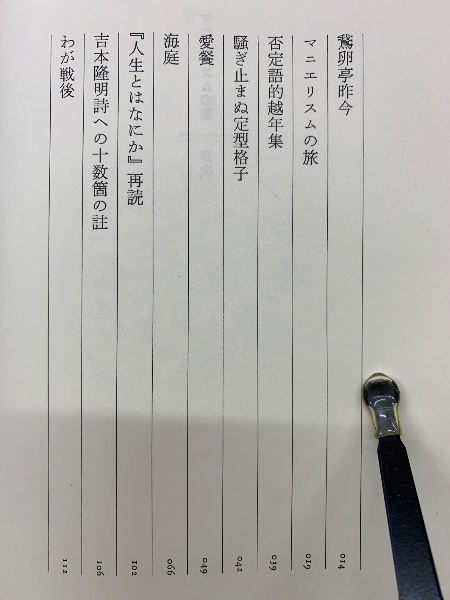 鵞卵亭昨今 014
マニエリスムの旅 019
否定語的越年集 039
騒ぎ止まぬ定型格子 042
愛餐 049
海庭 066
『人生とはなにか』再読 102
吉本隆明詩への十数箇の註 106
わが戦後 112